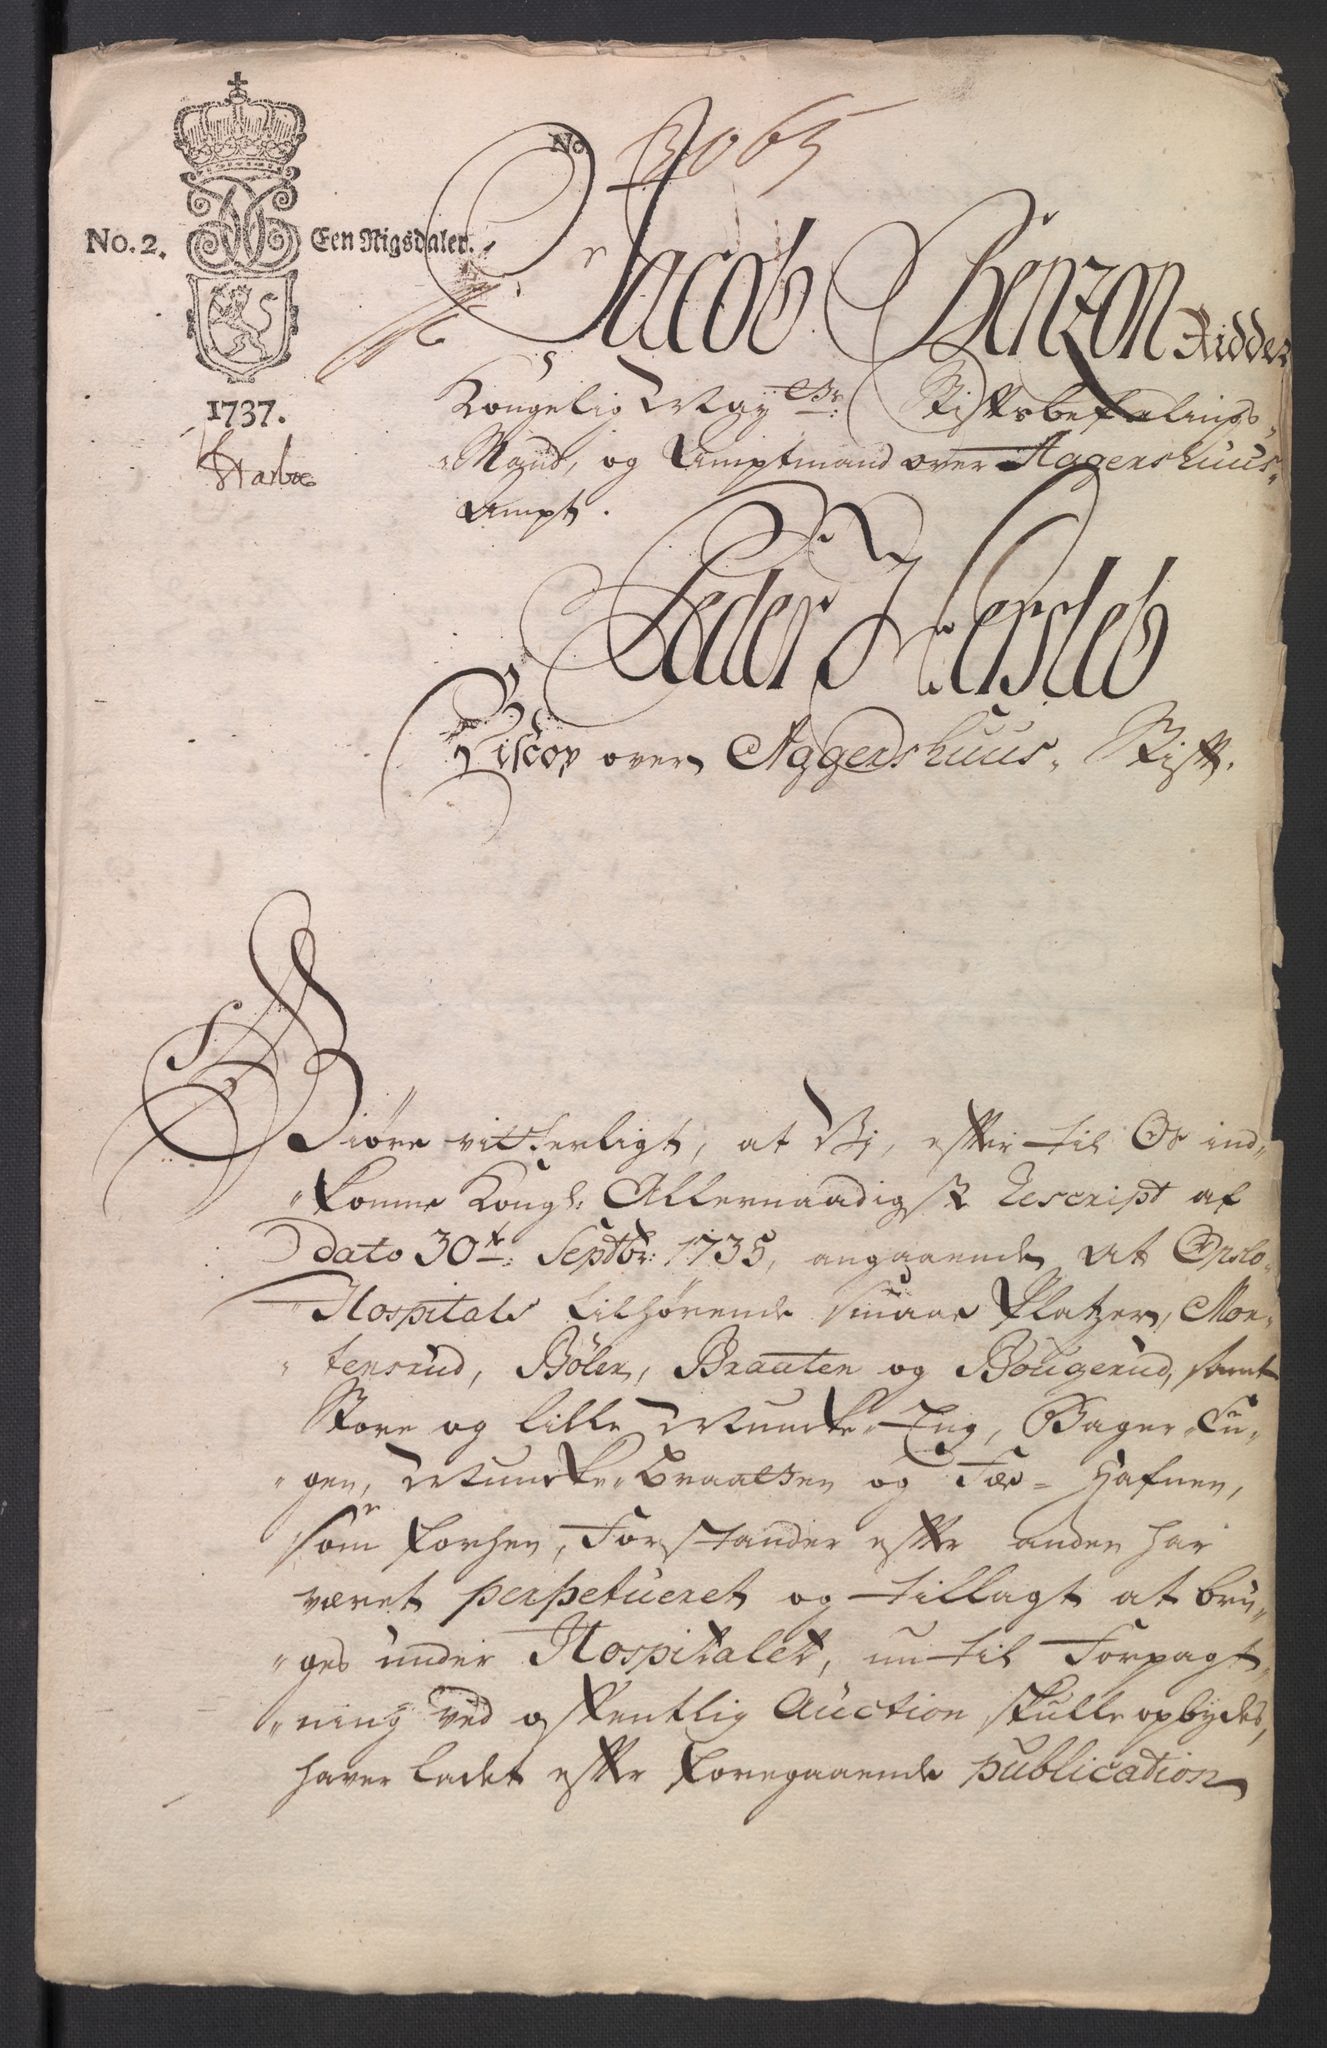 No. 3065
No. 2. Een Rigsdaler.
1737.
Jacob Benzon Ridder
Kongelig Mayts: Stiftsbefalings-
Mand, og Amptmand over Aggershuus-
Ampt.
Peder Hersleb
Biscop over Aggershuus-Stift.
Giøre vitterligt, at Vi, efter til Os ind-
komne Kongl: Allernaadigst Rescript af
dato 30te: Septbr: 1735, angaaende at Opslo
Hospitals tilhørende smaae Platzer, Mor-
tensrud, Bøler, Braaten og Bougerud, samt
Store og lille Muncke-Eng, Bager-En-
gen, Muncke-Braatten og Fæ-Hafnen,
som forhen, Forstander efter anden har
været perpetueret og tillagt at bru-
ges under Hospitalet, nu til Forpagt-
ning ved offentlig Auction skulle opbydes,
haver ladet efter foregaaende publication